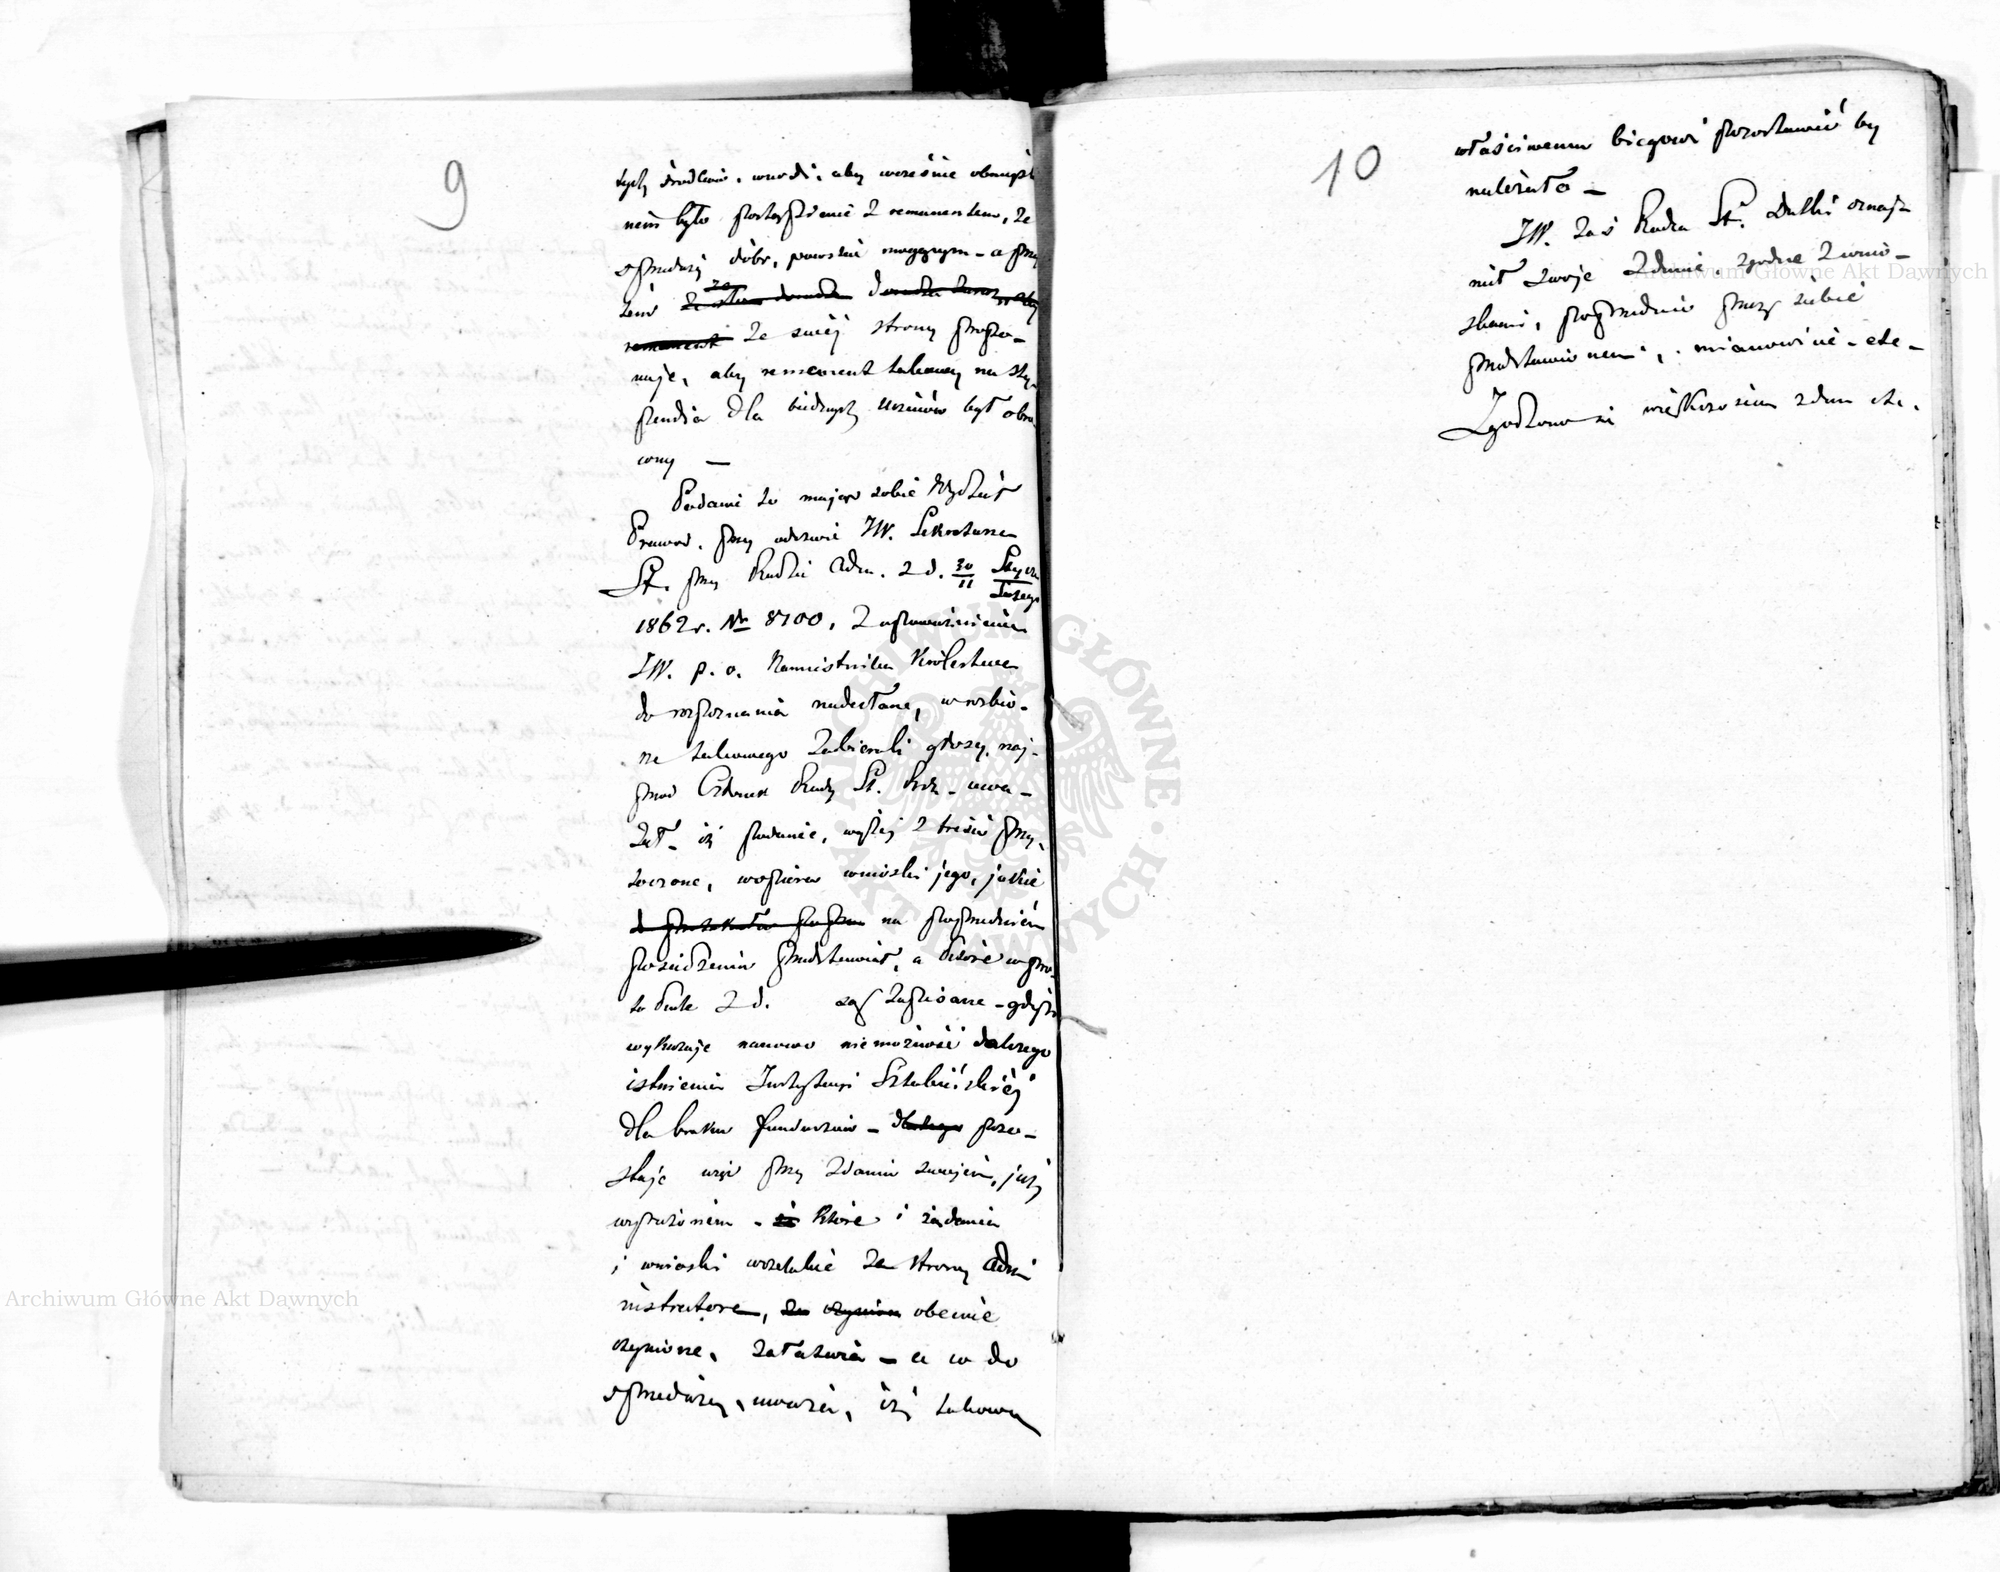 9
tych środków, wnosi, aby wcześnie obmyśl
nem było postąpienie z remanentem, ze
sprzedaży dóbr, powstać mogącym – a przy
tem
ze swej strony propo–
nuje, aby remanent takowy na sty–
pendia dla biednych uczniów był obró–
cony —
Podanie to mając sobie Wydział
Prawod. przy odezwie JW. Sekretarza
St. przy Radzie Adm. z d. 30/11 Stycz/Lutego
1862 r. No 8700, z upoważnienia
JW. p. o. Namiestnika Królestwa
do rozpoznania nadesłane, w rozbio–
rze takowego zabierali głosy, naj–
przód Członek Rady St. – uwa–
żał – iż podanie, wyżej z treści przy–
toczone, wspiera wnioski jego, jakie
na poprzedniem
posiedzeniu przedstawiał, a które w pro–
tokule z d. są zapisane – gdyż
wykazuje nanowo niemożność dalszego
istnienia Instytucyi Sztabińskiej
dla braku funduszów – pozo–
staje więc przy zdaniu swojem, już
wyrażonem – które i żądania
i wnioski wszelkie ze strony Admi
nistratora, obecnie
czynione, załatwia – a co do
sprzedaży, uważa, iż takową
10
właściwemu biegowi pozostawić by
należało –
JW. zaś Radca St. Dutki oznaj–
mił swoje zdanie, zgodne z wnio–
skami, poprzednio przez siebie
przedstawionemi, mianowicie – etc –
Zgodzono się większością zdań etc.
Archiwum Główne Akt Dawnych
Archiwum Główne Akt Dawnych
ARCHIWUM GŁÓWNE · AKT DAWNYCH ·